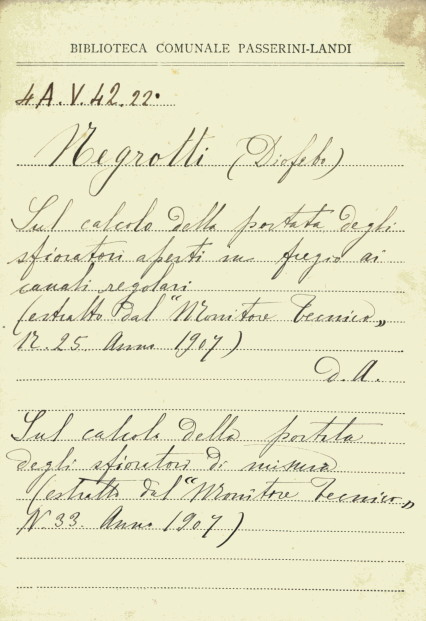 BIBLIOTECA COMUNALE PASSERINI-LANDI
4A.V.42.22.
Negrotti (Diofebo)
Sul calcolo della portata degli
sfioratori aperti in fregio ai
canali regolari
(estratto dal "Monitore Tecnico„
N. 25. Anno 1907)
D.A.
Sul calcolo della portata
degli sfioratori di misura
(estratto dal "Monitore Tecnico„
N. 33. Anno 1907)